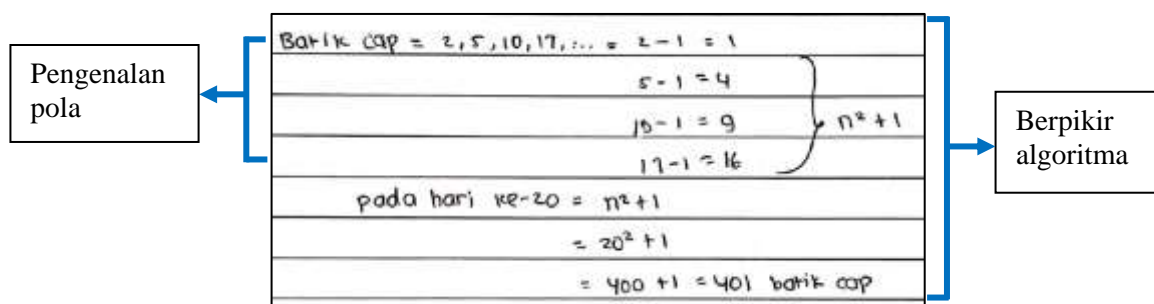 Pengenalan
pola
Batik cap = 2, 5, 10, 17, ... = 2 - 1 = 1
5 - 1 = 4
10 - 1 = 9
n² + 1
17 - 1 = 16
pada hari ke-20 = n² + 1
= 20² + 1
= 400 + 1 = 401 batik cap
Berpikir
algoritma